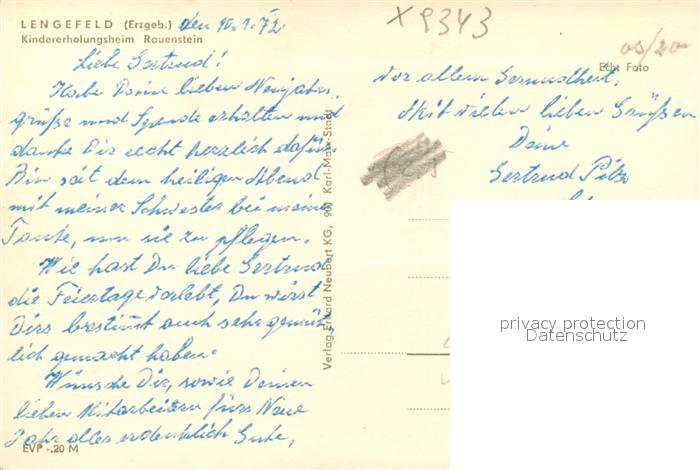 LENGEFELD (Erzgeb.) den 10.1.72
Kindererholungsheim Rauenstein
Liebe Gertrud!
Habe Deine lieben Neujahrs-
grüße und Spende erhalten und
danke Dir recht herzlich dafür.
Bin seit dem heiligen Abend
mit meiner Schwester bei meine
Tante, um sie zu pflegen.
Wie hast Du liebe Gertrud
die Feiertage verlebt, Du wirst
Dirs bestimt auch sehr gemüt-
lich gemacht haben.
Wünsche Dir, sowie Deinen
lieben Mitarbeitern fürs Neue
Jahr alles erdenklich Gute,
EVP -,20 M
Verlag Erhard Neubert KG, 901 Karl-Marx-Stadt
X 9343
03/20
Echt Foto
vor allem Gesundheit.
Mit vielen lieben Grüßen
Deine
Gertrud
privacy protection
Datenschutz